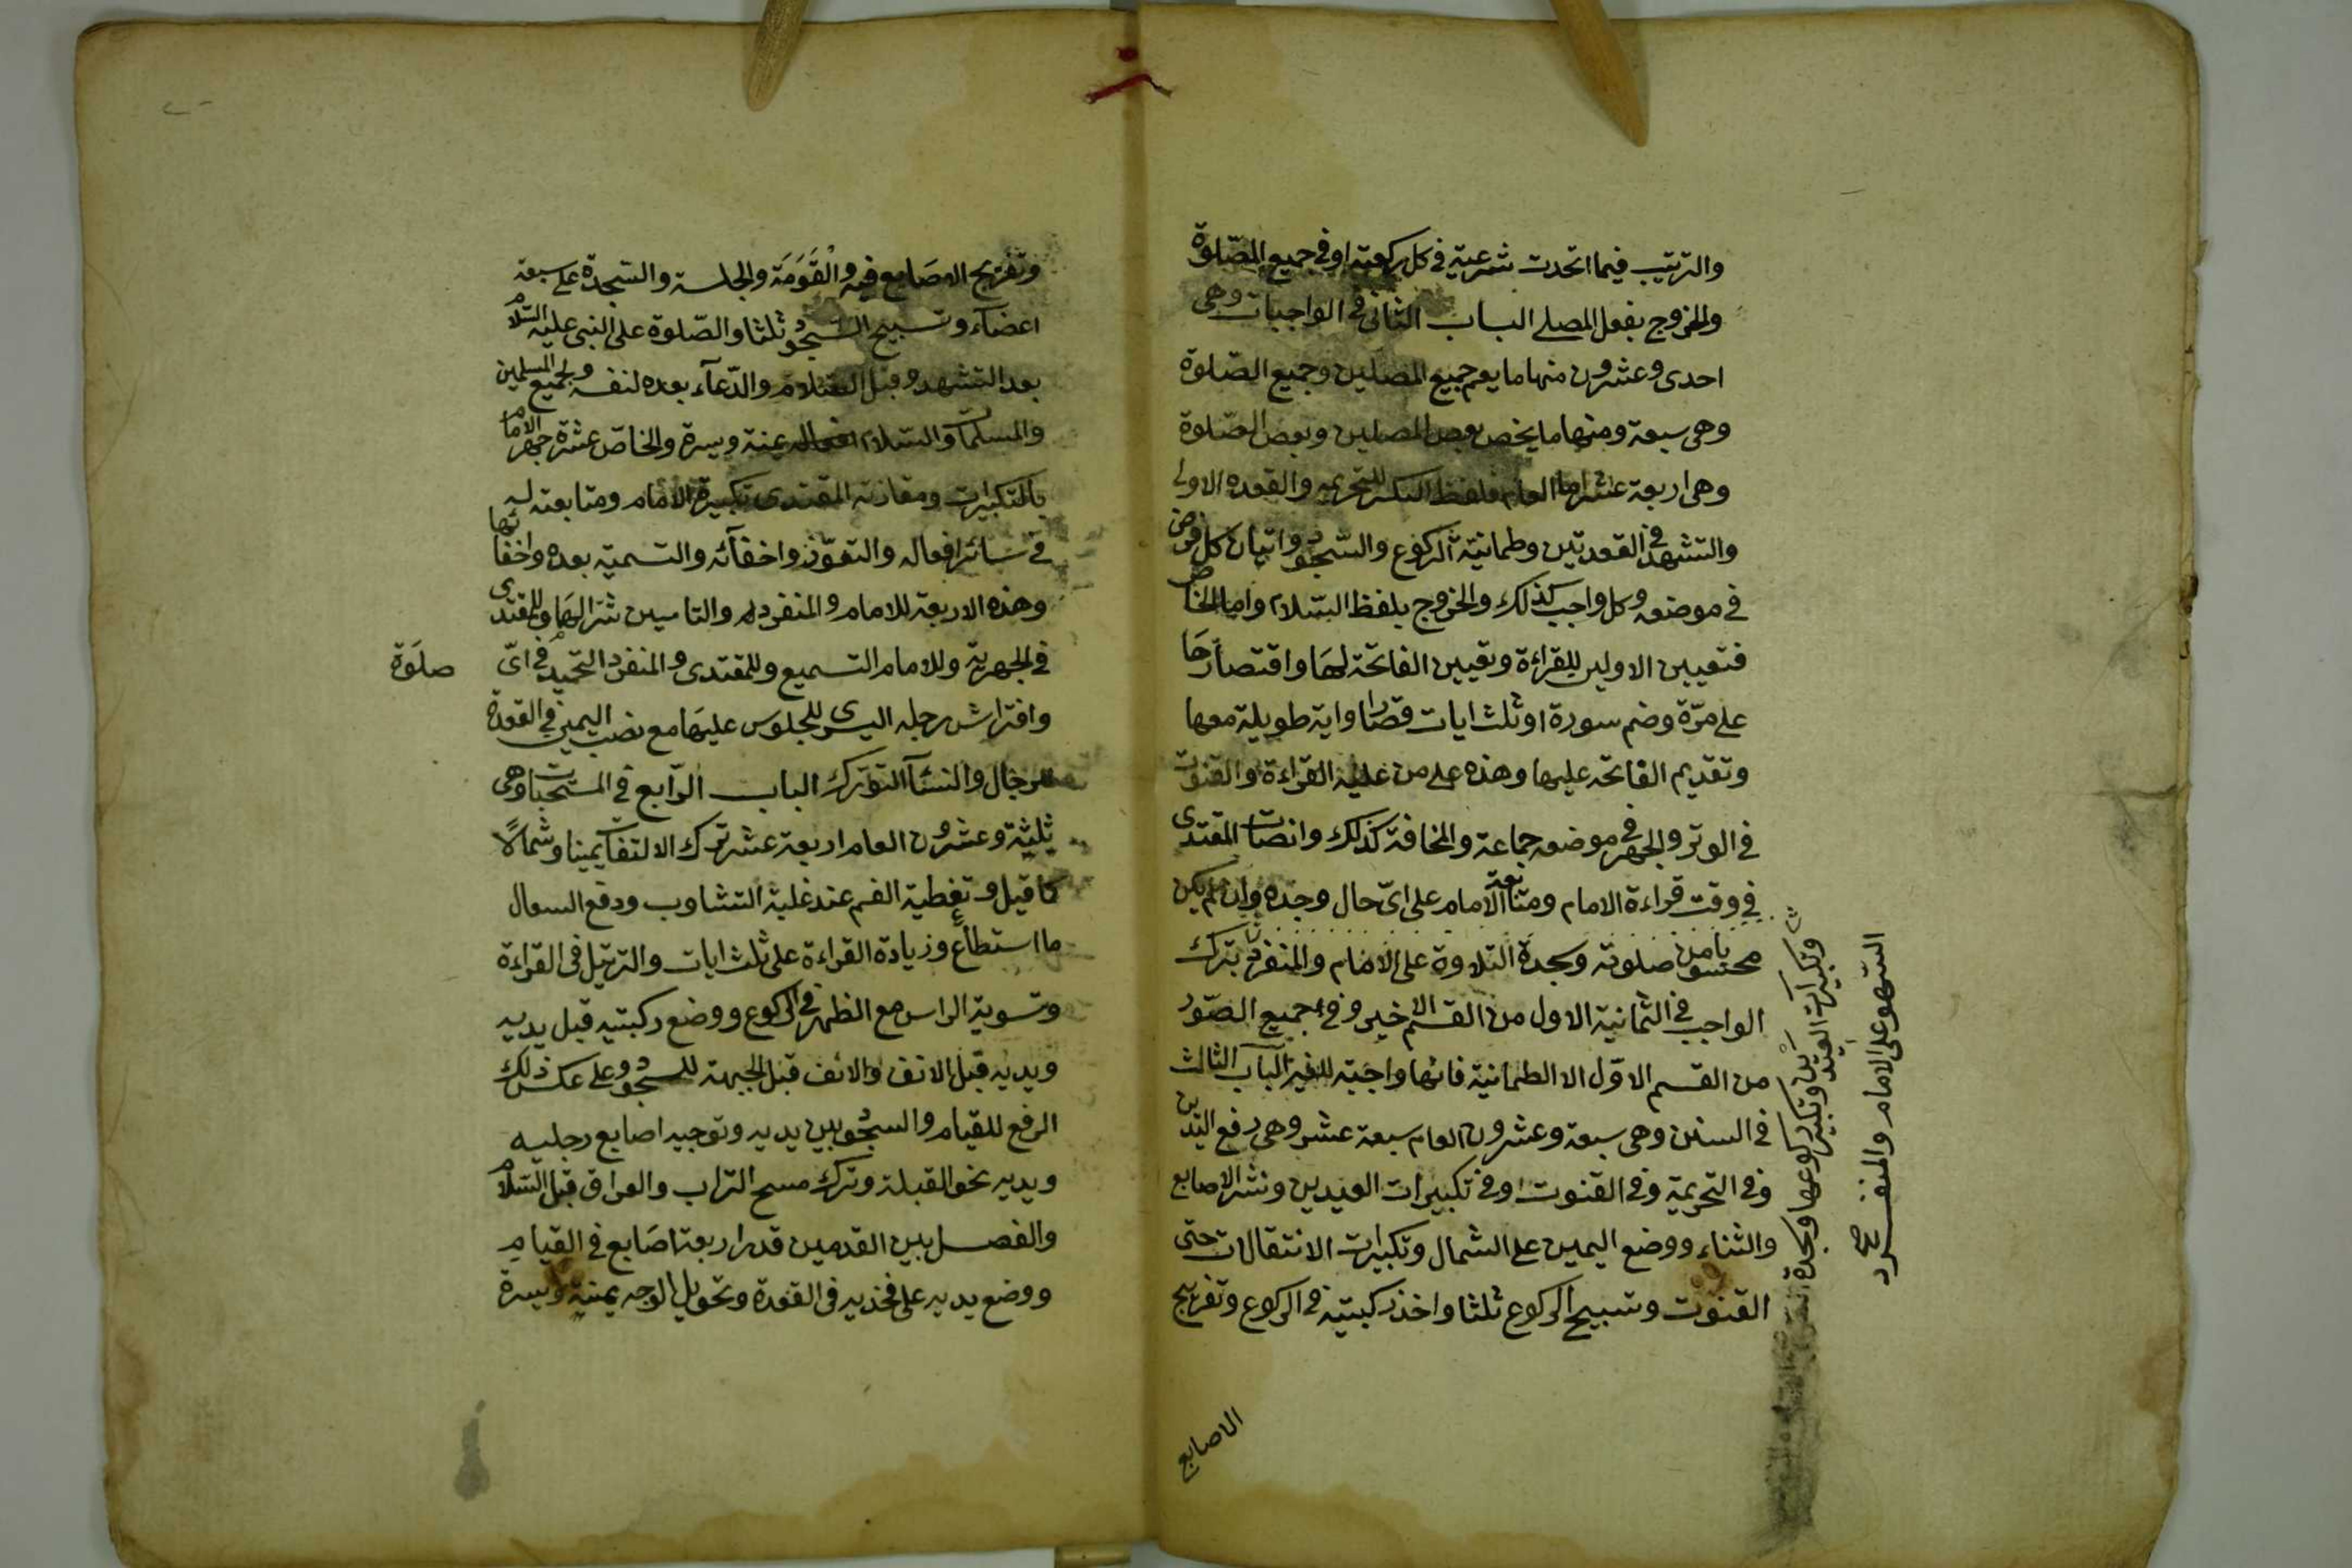 والترتيب فيما اتحدت شرعيته في كل ركعة او في جميع الصّلوة
والخروج بفعل المصلي الباب الثاني في الواجبات وهي
احدى وعشرون منها ما يعم جميع المصلين وجميع الصّلوة
وهي سبعة ومنها ما يخص بعض المصلين وبعض الصّلوة
وهي اربعة عشر اما العام فلفظ التكبير للتحريمه والقعدة الاولى
والتشهد في القعدتين وطمانية الركوع والسّجود واتيان كل فرض
في موضعه وكل واجب كذلك والخروج بلفظ السّلام واما الخاص
فتعيين الاوليين للقراءة وتعيين الفاتحة لهَا واقتصارهَا
على مرّة وضم سورة او ثلث ايات قصار او اية طويلة معها
وتقديم الفاتحه عليها وهذه على من عليه القراءة والقنوت
في الوتر والجهر في موضعه جماعة والمخافة كذلك وانصات المقتدى
في وقت قراءة الامام ومتابعة الامام على اىّ حال وجده وان لم يكن
محسوبا من صلوته وسجدة التلاوة على الامام والمنفرد بترك
الواجب في الثمانية الاول من القسم الاخير وفي جميع الصّور
من القسم الاوّل الا الطمانية فانها واجبة للغير الباب الثالث
في السنن وهي سبعة وعشرون العام سبعة عشر وهي رفع اليدين
وفي التحريمة وفي القنوت وفي تكبيرات العيدين ونشر الاصابع
والثناء ووضع اليمين على الشمال وتكبيرات الانتقالات حتى
القنوت وتسبيح الركوع ثلثا واخذ ركبتيه في الركوع وتفريج
الاصابع
وتكبيرات العيدين وتكبير ركوعها وسجدة
السّهو على الامام والمنفرد صح
وتفريج الاصَابع فيه والقَوْمَة والجلسة والسّجدة على سبعة
اعضاء وتسبيح السّجود ثلثا والصّلوة على النبى عليه السّلام
بعد التشهد وقبل السّلام والدّعآء بعده لنفسه ولجميع المسلمين
والمسلمات والسّلام يمنة ويسرة والخاصّ عشرة جهر الامام
بالتكبيرات ومقارنة المقتدى تكبيرة الامام ومتابعته له
في سَائر افعاله والتعوّذ واخفآئه والتسمية بعده واخفائها
وهذه الاربعة للامام والمنفرد والتامين سرّا لهمَا وللمقتدى
في الجهرية وللامام التسميع وللمقتدى والمنفرد التحميد في اىّ صلَوة
وافتراش رجله اليسرى للجلوس عليهَا مع نصب اليمين في القعدة
للرجال والنسَآ التورّك الباب الرّابع في المستحبات وهي
ثلثة وعشرون العام اربعة عشر ترك الالتفات يمينا وشمالًا
كما قيل وتغطية الفم عند غلبة التثاوب ودفع السعال
ما استطاع وزيادة القراءة على ثلث ايات والترتيل في القراءة
وتسوية الراس مع الظهر في الركوع ووضع ركبتيه قبل يديه
ويديه قبل الانف والانف قبل الجبهة للسجود وعلى عكس ذلك
الرفع للقيام والسجود بين يديه وتوجيه اصابع رجليه
ويديه نحو القبلة وترك مسح التراب والعراق قبل السّلام
والفصل بين القدمين قدر اربعة اصَابع في القيام
ووضع يديه على فخذيه في القعدة وتحويل الوجه يمنة ويسرة